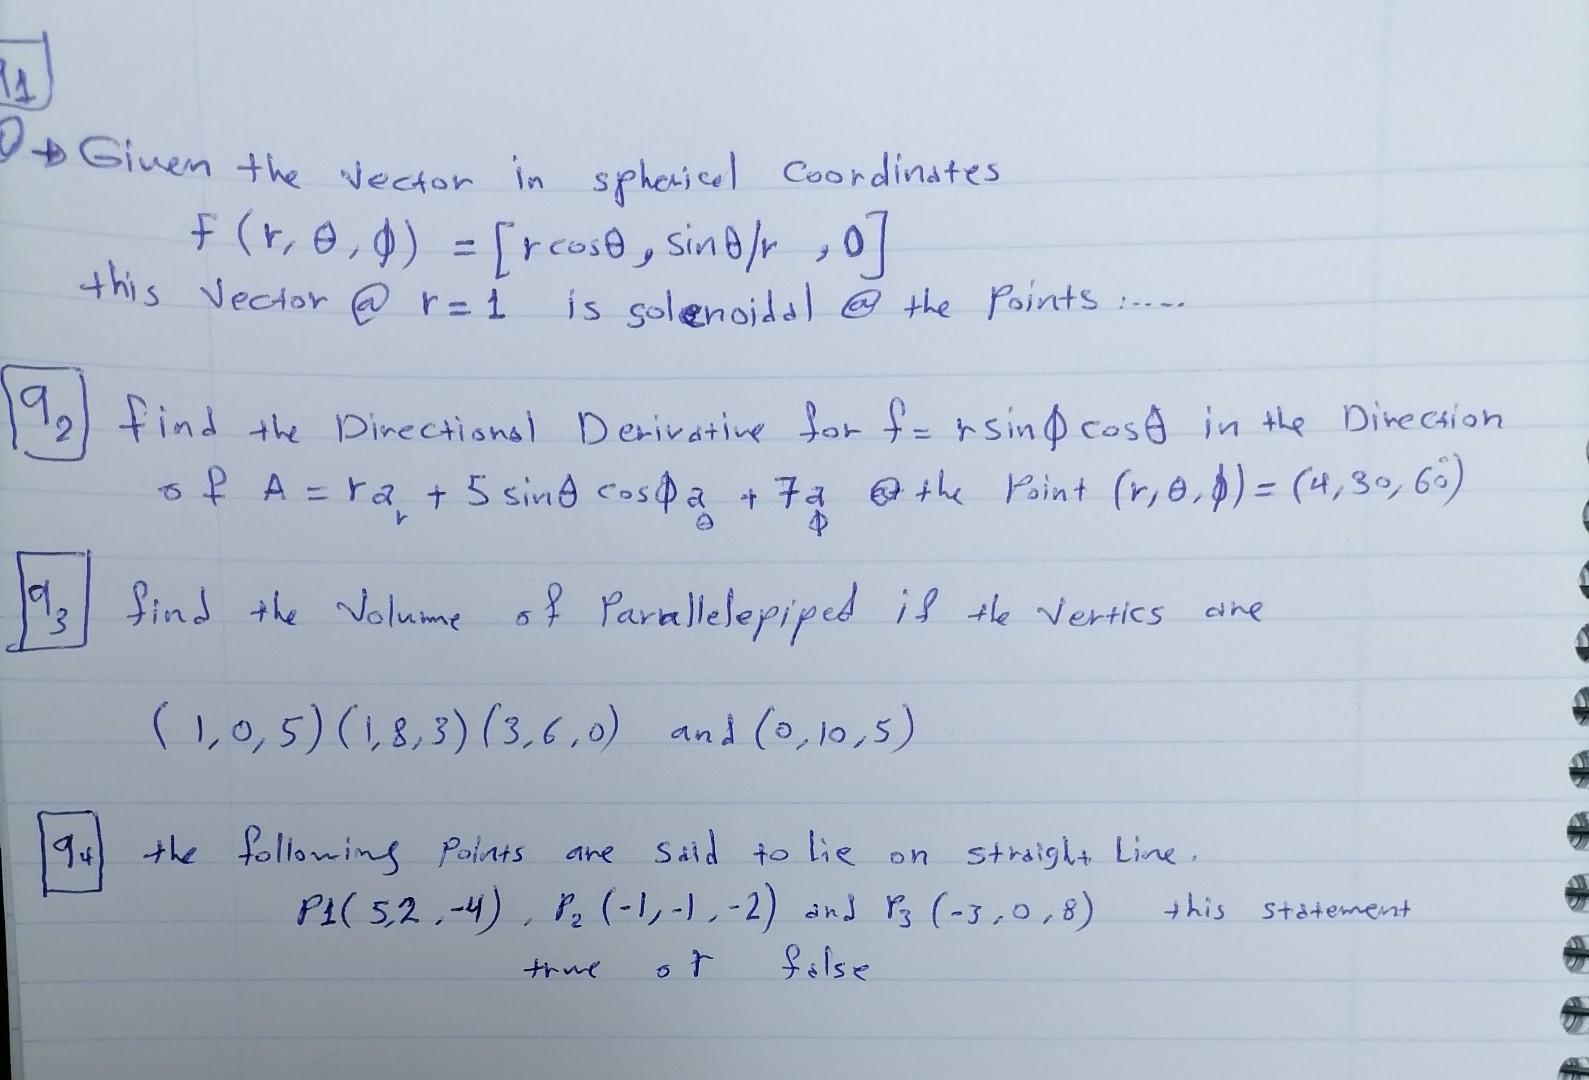 q1
Given the Vector in spherical Coordinates
f (r, θ, ϕ) = [r cosθ, sinθ/r , 0]
this Vector @ r=1 is solenoidal @ the Points :.....
q2 find the Directional Derivative for f= r sinϕ cosθ in the Direction
of A = r a_r + 5 sinθ cosϕ a_θ + 7 a_ϕ @ the Point (r, θ, ϕ) = (4, 30, 60°)
q3 find the Volume of Parallelepiped if the Vertics are
(1,0,5) (1,8,3) (3,6,0) and (0,10,5)
q4 the following Points are said to lie on straight Line.
P1( 5,2,-4) , P2 (-1,-1,-2) and P3 (-3,0,8) this statement
true or false